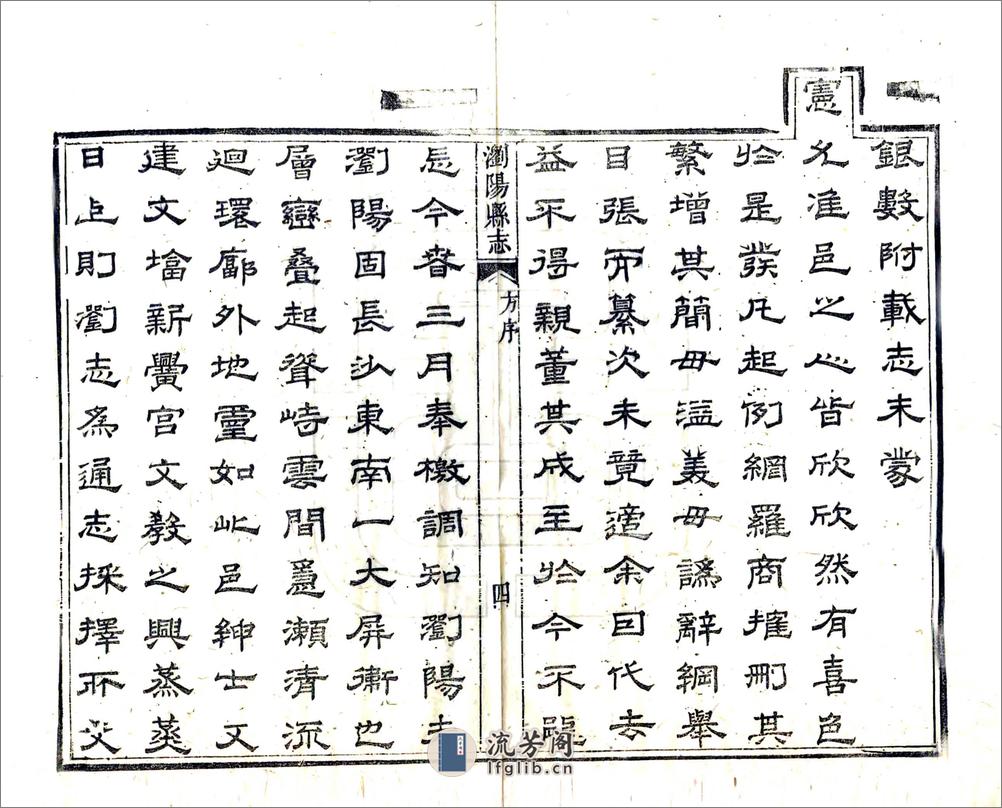 銀數附載志末蒙
憲允准邑之心皆欣欣然有喜色
於是發凡起例網羅商搉刪其
繁增其簡毋濫美毋譌辭綱舉
目張而纂次未竟適余因代去
益不得親董其成至於今不能
瀏陽縣志 方序 四
忘今春三月奉檄調知瀏陽夫
瀏陽固長沙東南一大屏衛也
層巒叠起聳峙雲間瀨清流
迴環廓外地靈如此邑紳士又
建文塔新黌宮文教之興蒸蒸
日上則瀏志為通志採擇所必
流芳阁
lfglib.cn